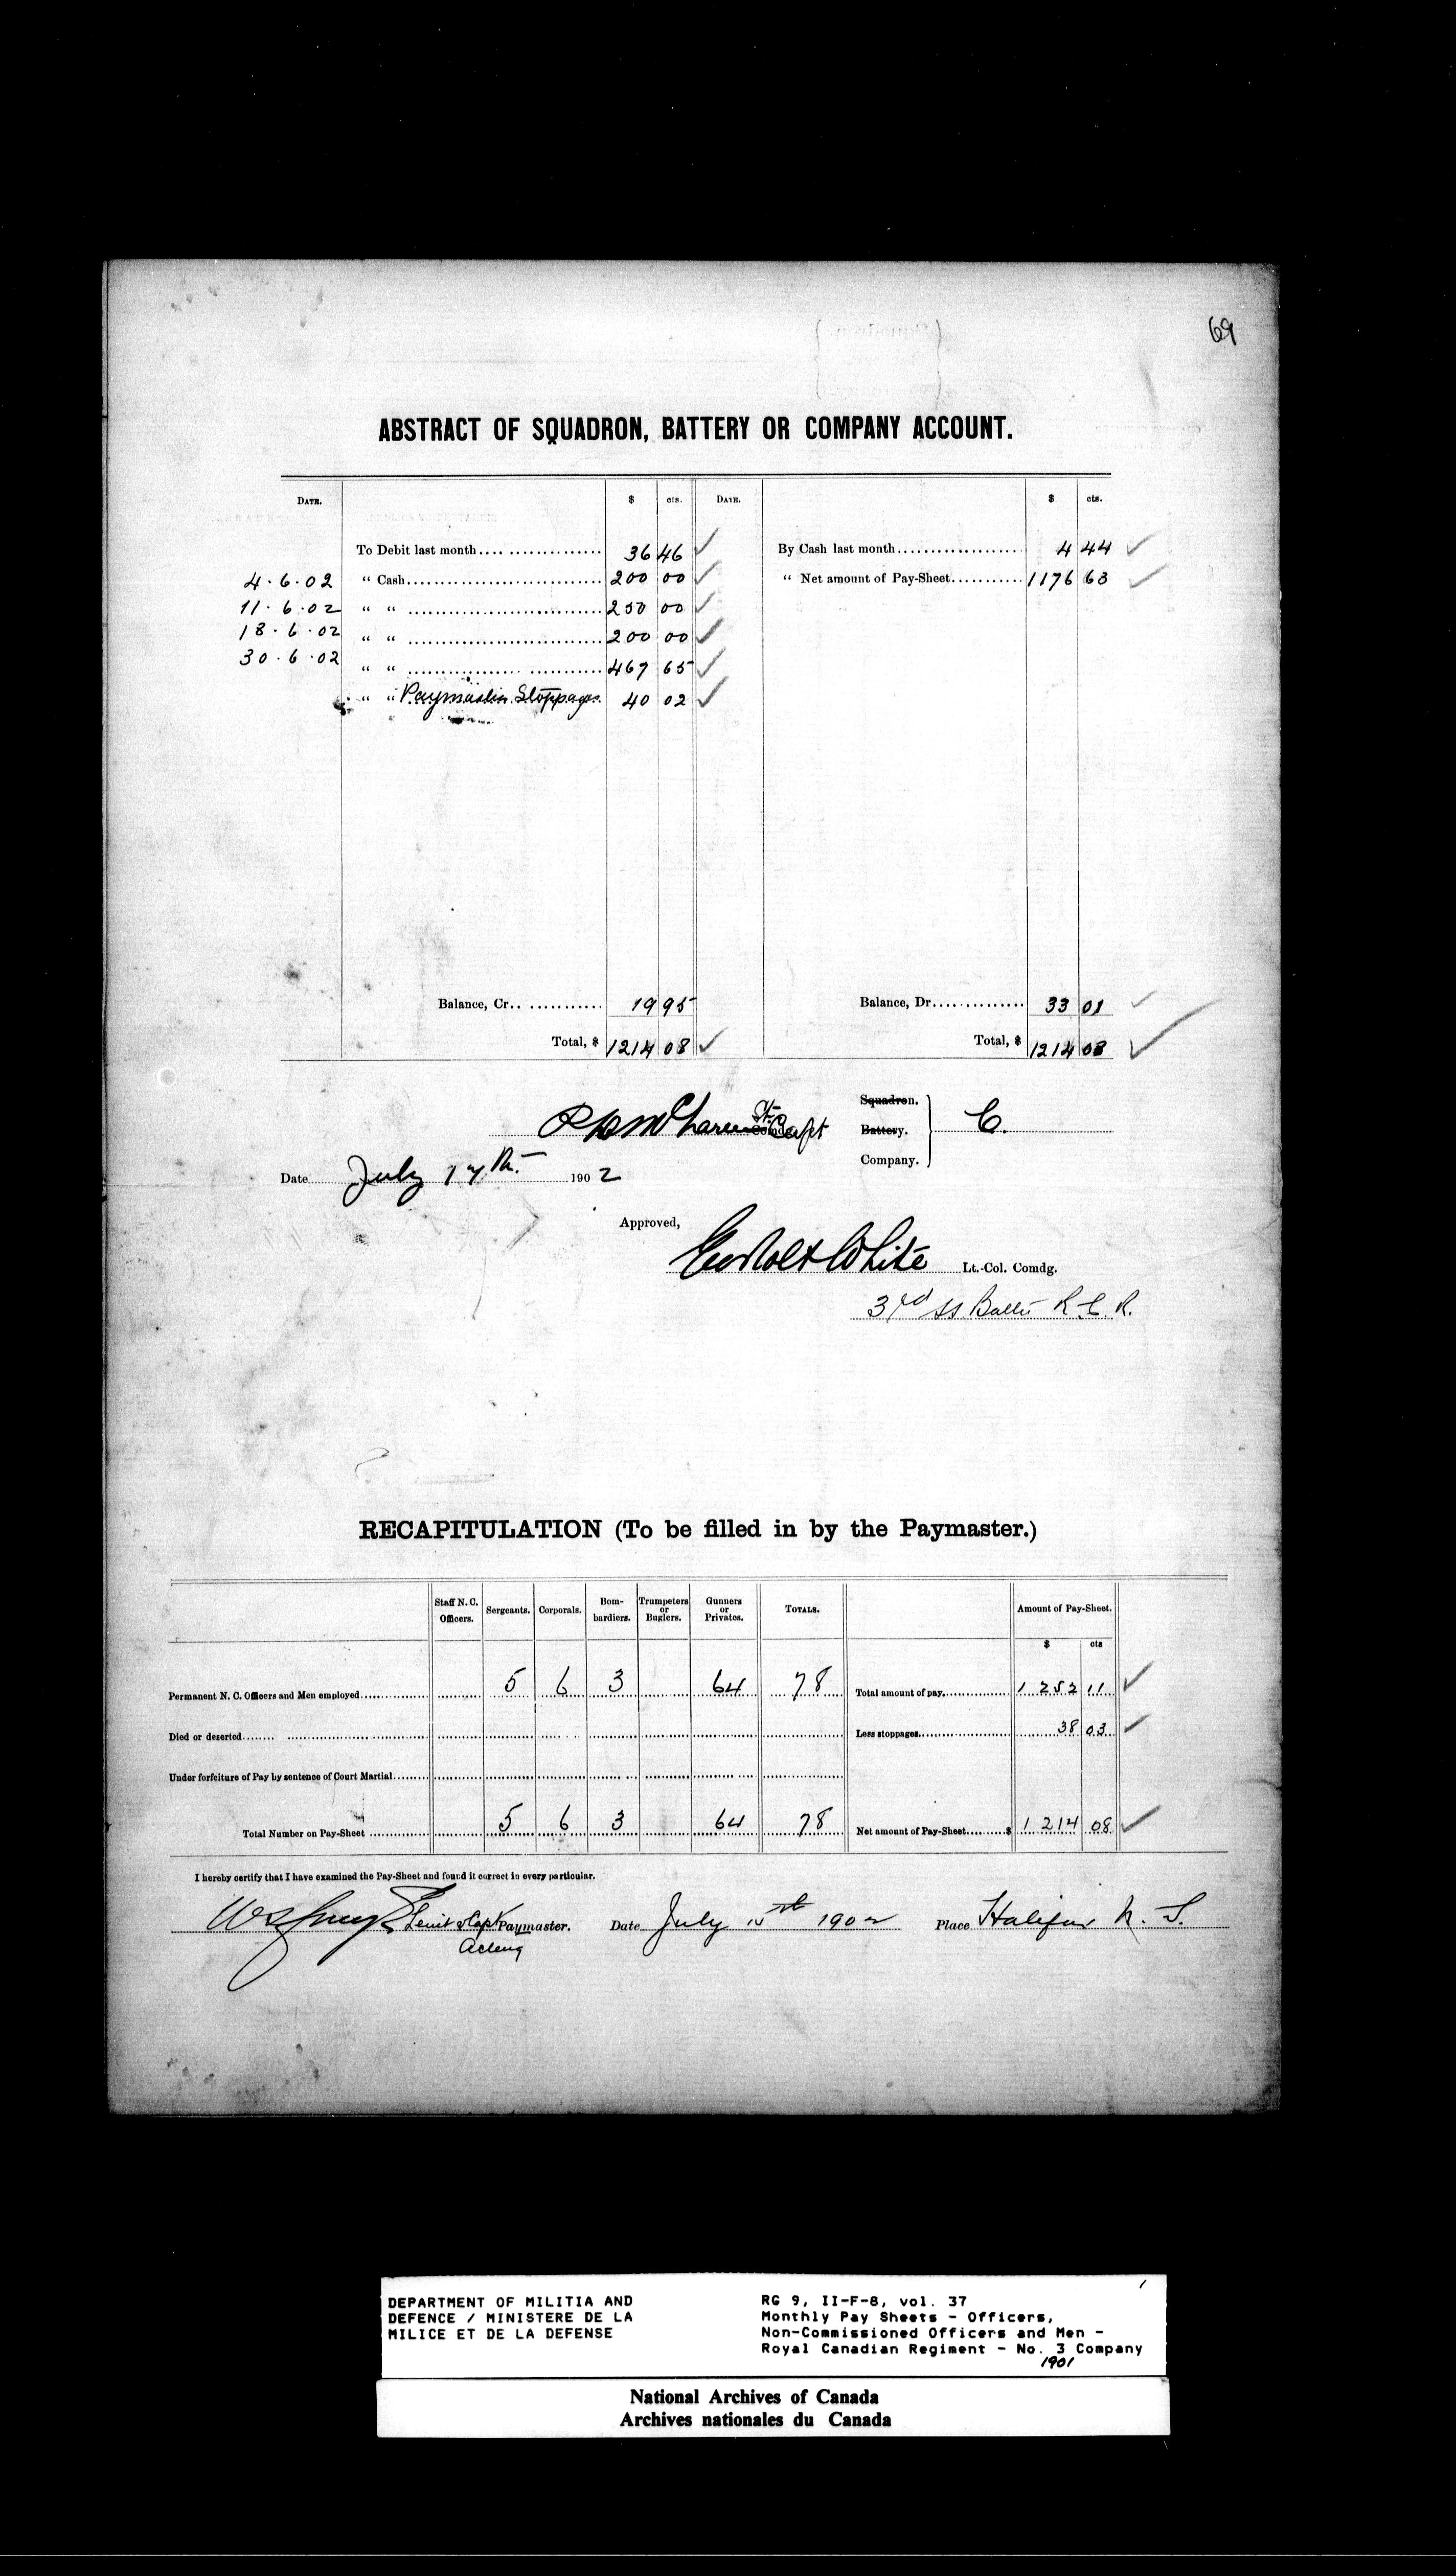 69
ABSTRACT OF SQUADRON, BATTERY OR COMPANY ACCOUNT.
DATE. $ cts. DATE. $ cts.
To Debit last month 36 46 By Cash last month 4 44
4.6.02 “ Cash 200 00 “ Net amount of Pay-Sheet 1176 63
11.6.02 “ “ 250 00
18.6.02 “ “ 200 00
30.6.02 “ “ 467 65
“ “ Paymaster Stoppages 40 02
Balance, Cr. 19 95 Balance, Dr. 33 01
Total, $ 1214 08 Total, $ 1214 08
Capt
Squadron.
Battery. C.
Company.
Date July 17th 1902
Approved,
White Lt.-Col. Comdg.
3rd Batt R.C.R.
RECAPITULATION (To be filled in by the Paymaster.)
Staff N. C. Officers. Sergeants. Corporals. Bombardiers. Trumpeters or Buglers. Gunners or Privates. TOTALS. Amount of Pay-Sheet.
$ cts
Permanent N. C. Officers and Men employed 5 6 3 64 78 Total amount of pay 1252 11
Died or deserted Less stoppages 38 03
Under forfeiture of Pay by sentence of Court Martial
Total Number on Pay-Sheet 5 6 3 64 78 Net amount of Pay-Sheet $ 1214 08
I hereby certify that I have examined the Pay-Sheet and found it correct in every particular.
Lieut & Capt Paymaster. Date July 1902 Place Halifax N. S.
Acting
DEPARTMENT OF MILITIA AND
DEFENCE / MINISTERE DE LA
MILICE ET DE LA DEFENSE
RG 9, II-F-8, vol. 37
Monthly Pay Sheets - Officers,
Non-Commissioned Officers and Men -
Royal Canadian Regiment - No. 3 Company
1901
National Archives of Canada
Archives nationales du Canada